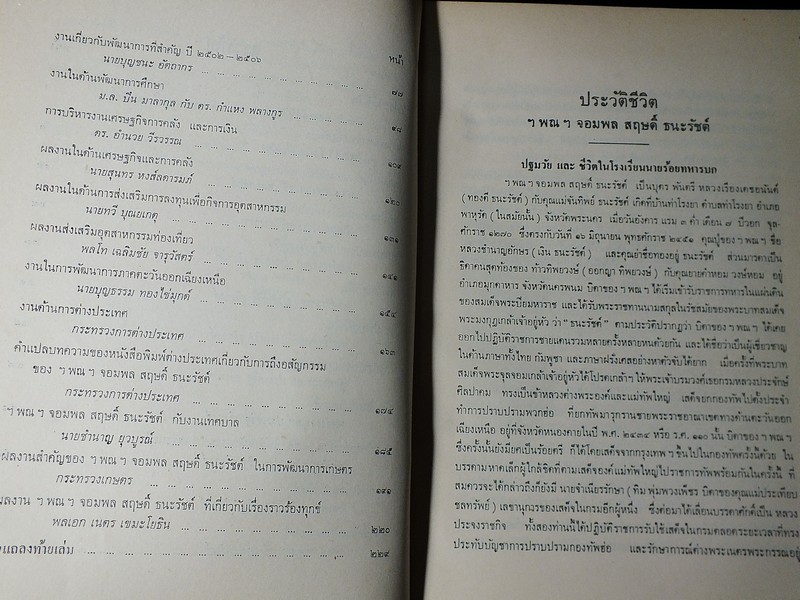 หน้า
งานเกี่ยวกับพัฒนาการที่สำคัญ ปี ๒๕๐๒—๒๕๐๖
นายบุญชนะ อัตถากร ... ๗๘
งานในด้านพัฒนาการศึกษา
ม.ล. ปิ่น มาลากุล กับ ดร. กำแหง พลางกูร ... ๙๘
การบริหารงานเศรษฐกิจการคลัง และการเงิน
ดร. อำนวย วีรวรรณ ... ๑๐๔
ผลงานในด้านเศรษฐกิจและการคลัง
นายสุนทร หงส์ลดารมภ์ ... ๑๒๐
ผลงานในด้านการส่งเสริมการลงทุนเพื่อกิจการอุตสาหกรรม
นายทวี บุณยเกตุ ... ๑๓๑
ผลงานส่งเสริมอุตสาหกรรมท่องเที่ยว
พลโท เฉลิมชัย จารุวัสตร์ ... ๑๔๑
งานในการพัฒนาการภาคตะวันออกเฉียงเหนือ
นายบุญธรรม ทองไข่มุกต์ ... ๑๕๔
งานด้านการต่างประเทศ
กระทรวงการต่างประเทศ ... ๑๖๓
คำแปลบทความของหนังสือพิมพ์ต่างประเทศเกี่ยวกับการถึงอสัญกรรม
ของ ฯ พณ ฯ จอมพล สฤษดิ์ ธนะรัชต์
กระทรวงการต่างประเทศ ... ๑๗๔
ฯ พณ ฯ จอมพล สฤษดิ์ ธนะรัชต์ กับงานเทศบาล
นายชำนาญ ยุวบูรณ์ ... ๑๘๕
ผลงานสำคัญของ ฯ พณ ฯ จอมพล สฤษดิ์ ธนะรัชต์ ในการพัฒนาการเกษตร
กระทรวงเกษตร ... ๑๙๑
ผลงาน ฯ พณ ฯ จอมพล สฤษดิ์ ธนะรัชต์ ที่เกี่ยวกับเรื่องราวร้องทุกข์
พลเอก เนตร เขมะโยธิน ... ๒๒๐
แถลงท้ายเล่ม ... ๒๒๙
ประวัติชีวิต
ฯ พณ ฯ จอมพล สฤษดิ์ ธนะรัชต์
ปฐมวัย และ ชีวิตในโรงเรียนนายร้อยทหารบก
ฯ พณ ฯ จอมพล สฤษดิ์ ธนะรัชต์ เป็นบุตร พันตรี หลวงเรืองเดชอนันต์
(ทองดี ธนะรัชต์) กับคุณแม่จันทิพย์ ธนะรัชต์ เกิดที่บ้านท่าโรงยา ตำบลท่าโรงยา อำเภอ
พาหุรัด (ในสมัยนั้น) จังหวัดพระนคร เมื่อวันอังคาร แรม ๓ ค่ำ เดือน ๗ ปีวอก จุล-
ศักราช ๑๒๗๐ ซึ่งตรงกับวันที่ ๑๖ มิถุนายน พุทธศักราช ๒๔๕๑ คุณปู่ของ ฯ พณ ฯ ชื่อ
หลวงชำนาญอักษร (เงิน ธนะรัชต์) และคุณย่าชื่อทองอยู่ ธนะรัชต์ ส่วนมารดาเป็น
ธิดาคนสุดท้องของ ท้าวทิพยวงษ์ (ออกญา ทิพยวงษ์) กับคุณยายคำหอม วงษ์หอม อยู่
อำเภอมุกดาหาร จังหวัดนครพนม บิดาของ ฯ พณ ฯ ได้เริ่มเข้ารับราชการทหารในแผ่นดิน
ของสมเด็จพระปิยมหาราช และได้รับพระราชทานนามสกุลในรัชสมัยของพระบาทสมเด็จ
พระมงกุฎเกล้าเจ้าอยู่หัว ว่า “ธนะรัชต์” ตามประวัติปรากฏว่า บิดาของ ฯ พณ ฯ ได้เคย
ออกไปปฏิบัติราชการชายแดนรวมหลายครั้งหลายหนด้วยกัน และได้ชื่อว่าเป็นผู้เชี่ยวชาญ
ในด้านภาษาทั้งไทย กัมพูชา และภาษาฝรั่งเศสอย่างหาตัวจับได้ยาก เมื่อครั้งที่พระบาท
สมเด็จพระจุลจอมเกล้าเจ้าอยู่หัวได้โปรดเกล้าฯ ให้พระเจ้าบรมวงศ์เธอกรมหลวงประจักษ์
ศิลปาคม ทรงเป็นข้าหลวงต่างพระองค์และแม่ทัพใหญ่ เสด็จยกกองทัพไปตั้งประจำ
ทำการปราบปรามพวกฮ่อ ที่ยกทัพมารุกรานชายพระราชอาณาเขตทางด้านตะวันออก
เฉียงเหนือ อยู่ที่จังหวัดหนองคายในปี พ.ศ. ๒๔๓๔ หรือ ร.ศ. ๑๑๐ นั้น บิดาของ ฯ พณ ฯ
ซึ่งครั้งนั้นยังมียศเป็นร้อยตรี ก็ได้โดยเสด็จจากกรุงเทพ ฯ ขึ้นไปในกองทัพครั้งนี้ด้วย ใน
บรรดามหาดเล็กผู้ใกล้ชิดที่ตามเสด็จองค์แม่ทัพใหญ่ไปราชการทัพพร้อมกันในครั้งนี้ ที่
สมควรจะได้กล่าวถึงก็ยังมี นายจำเนียรรักษา (ทิม พุ่มพวงเพ็ชร บิดาของคุณแม่ประเทียบ
ชลทรัพย์) เลขานุการของเสด็จในกรมอีกผู้หนึ่ง ซึ่งต่อมาได้เลื่อนบรรดาศักดิ์เป็น หลวง
ประจงราชกิจ ทั้งสองท่านนี้ได้ปฏิบัติราชการรับใช้เสด็จในกรมตลอดระยะเวลาที่ทรง
ประทับบัญชาการปราบปรามกองทัพฮ่อ และรักษาการณ์ต่างพระเนตรพระกรรณอยู่